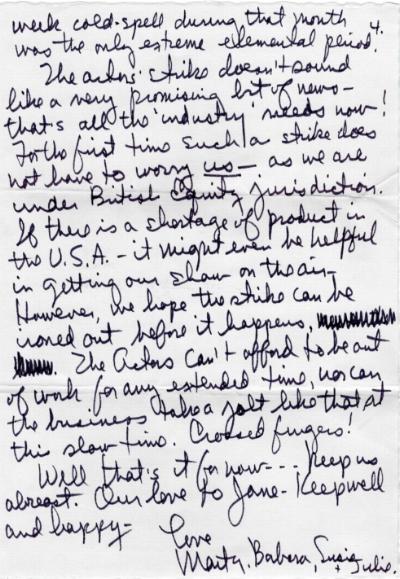 week cold-spell during that month 4.
was the only extreme elemental period.
The actors' strike doesn't sound
like a very promising bit of news-
that's all the 'industry' needs now!
For the first time such a strike does
not have to worry us - as we are
under British Equity jurisdiction.
If there is a shortage of product in
the U.S.A. - it might even be helpful
in getting our show on the air-
However, we hope the strike can be
ironed out before it happens,
The Actors can't afford to be out
of work for any extended time, nor can
the business take a jolt like that at
this slow-time. Crossed fingers!
Well that's it for now--- Keep us
abreast. Our love to Jane- Keep well
and happy-
Love
Marty, Barbara, Susie
+ Julie.